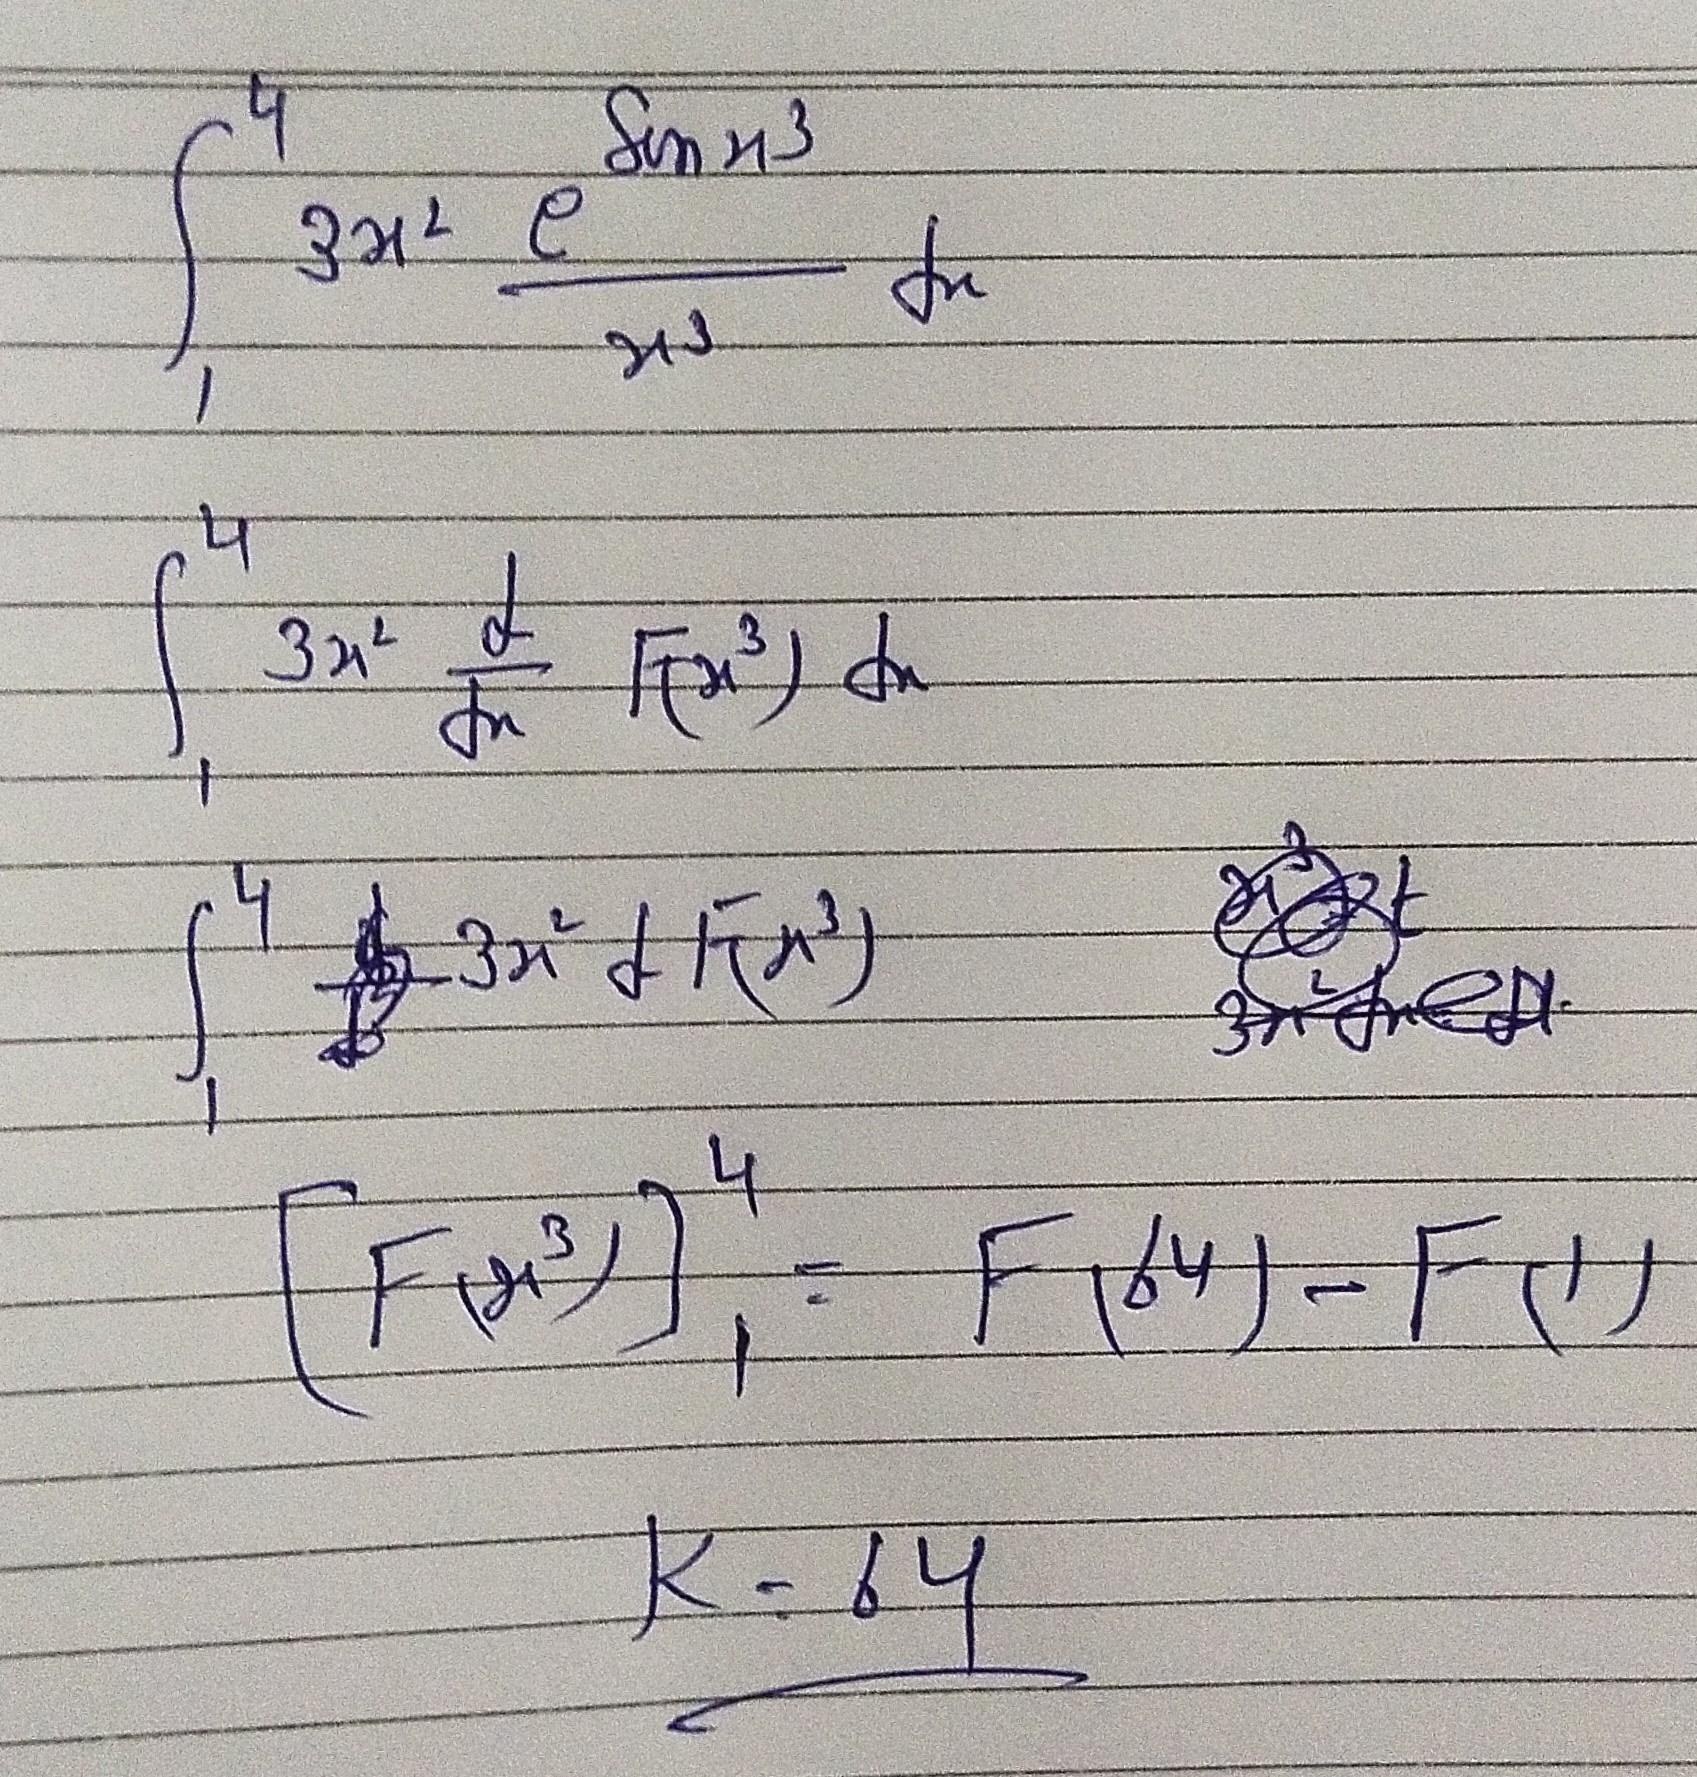 ∫₁⁴ 3x² e^(sin x³) / x³ dx
∫₁⁴ 3x² d/dx F(x³) dx
∫₁⁴ 3x² d F(x³)
[F(x³)]₁⁴ = F(64) - F(1)
K = 64